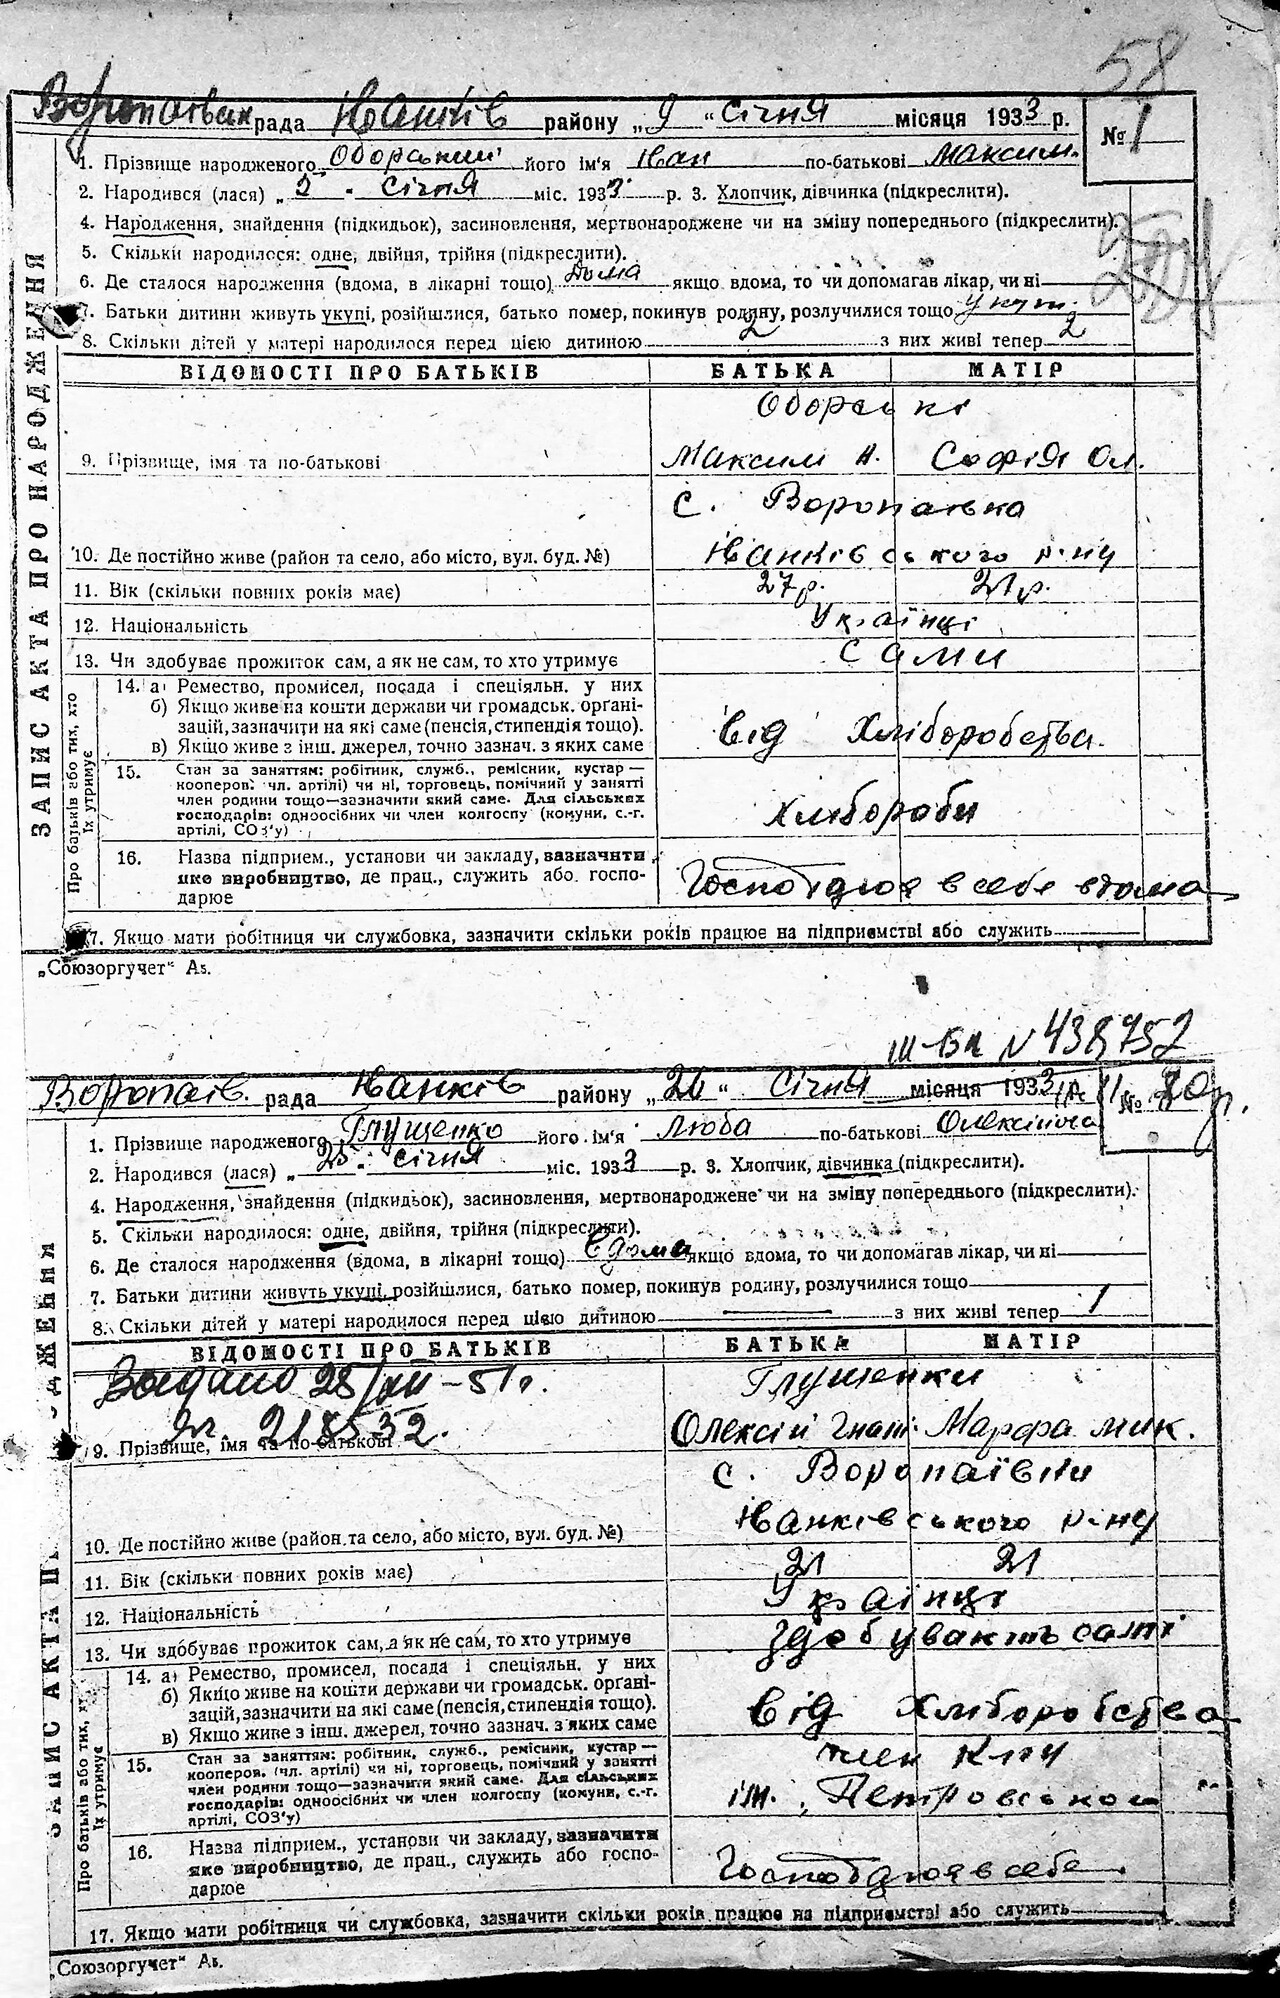 58
Воропаївська рада Іванків району „9“ січня місяця 1933 р.
№ 1
1. Прізвище народженого Оборський його ім'я Іван по-батькові Максим.
2. Народився (лася) „5 - січня міс. 1933 р. 3. Хлопчик, дівчинка (підкреслити).
4. Народження, знайдення (підкидьок), засиновлення, мертвонароджене чи на зміну попереднього (підкреслити).
5. Скільки народилося: одне, двійня, трійня (підкреслити).
6. Де сталося народження (вдома, в лікарні тощо) дома якщо вдома, то чи допомагав лікар, чи ні
7. Батьки дитини живуть укупі, розійшлися, батько помер, покинув родину, розлучилися тощо укупі
8. Скільки дітей у матері народилося перед цією дитиною 2 з них живі тепер 2
ЗАПИС АКТА ПРО НАРОДЖЕННЯ
ВІДОМОСТІ ПРО БАТЬКІВ БАТЬКА МАТІР
Оборські
9. Прізвище, імя та по-батькові Максим А. Софія Ол.
с. Воропаївка
10. Де постійно живе (район та село, або місто, вул. буд. №) Іванківського р-ну
11. Вік (скільки повних років має) 27 р. 21 р.
12. Національність Українці
13. Чи здобуває прожиток сам, а як не сам, то хто утримує сами
Про батьків або тих, хто їх утримує
14. а) Ремество, промисел, посада і спеціяльн. у них
б) Якщо живе на кошти держави чи громадськ. орґані-
зацій, зазначити на які саме (пенсія, стипендія тощо).
в) Якщо живе з інш. джерел, точно зазнач. з яких саме
від Хліборобства.
15. Стан за заняттям: робітник, служб., ремісник, кустар—
кооперов. чл. артілі) чи ні, торговець, помічний у занятті
член родини тощо—зазначити який саме. Для сільських
господарів: одноосібних чи член колгоспу (комуни, с.-г.
артілі, СОЗ'у)
Хлібороби
16. Назва підприєм., установи чи закладу, зазначити
яке виробництво, де прац., служить або госпо-
дарює
Господарюя в себе вдома
17. Якщо мати робітниця чи службовка, зазначити скільки років працює на підприємстві або служить
„Союзоргучет“ А5.
III-БА № 438752
Воропаїв. рада Іванків району „26“ січня місяця 1933
№
1. Прізвище народженого Глущенко його ім'я Люба по-батькові Олексіївна
2. Народився (лася) „25 - січня міс. 1933 р. 3. Хлопчик, дівчинка (підкреслити).
4. Народження, знайдення (підкидьок), засиновлення, мертвонароджене чи на зміну попереднього (підкреслити).
5. Скільки народилося: одне, двійня, трійня (підкреслити).
6. Де сталося народження (вдома, в лікарні тощо) вдома якщо вдома, то чи допомагав лікар, чи ні
7. Батьки дитини живуть укупі, розійшлися, батько помер, покинув родину, розлучилися тощо
8. Скільки дітей у матері народилося перед цією дитиною з них живі тепер 1
ВІДОМОСТІ ПРО БАТЬКІВ БАТЬКА МАТІР
25/XII-51 г.
218532.
Глущенки
9. Прізвище, імя та по-батькові Олексій Гнат. Марфа мик.
с. Воропаївки
10. Де постійно живе (район та село, або місто, вул. буд. №) Іванківського р-ну
11. Вік (скільки повних років має) 21 21
12. Національність Українці
13. Чи здобуває прожиток сам, а як не сам, то хто утримує здобувають самі
Про батьків або тих, хто їх утримує
14. а) Ремество, промисел, посада і спеціяльн. у них
б) Якщо живе на кошти держави чи громадськ. орґані-
зацій, зазначити на які саме (пенсія, стипендія тощо).
в) Якщо живе з інш. джерел, точно зазнач. з яких саме
від Хліборобства
15. Стан за заняттям: робітник, служб., ремісник, кустар—
кооперов. (чл. артілі) чи ні, торговець, помічний у занятті
член родини тощо—зазначити який саме. Для сільських
господарів: одноосібних чи член колгоспу (комуни, с.-г.
артілі, СОЗ'у)
член
ім. Петровського
16. Назва підприєм., установи чи закладу, зазначити
яке виробництво, де прац., служить або госпо-
дарює
Господарюя в себе
17. Якщо мати робітниця чи службовка, зазначити скільки років працює на підприємстві або служить
„Союзоргучет“ А5.